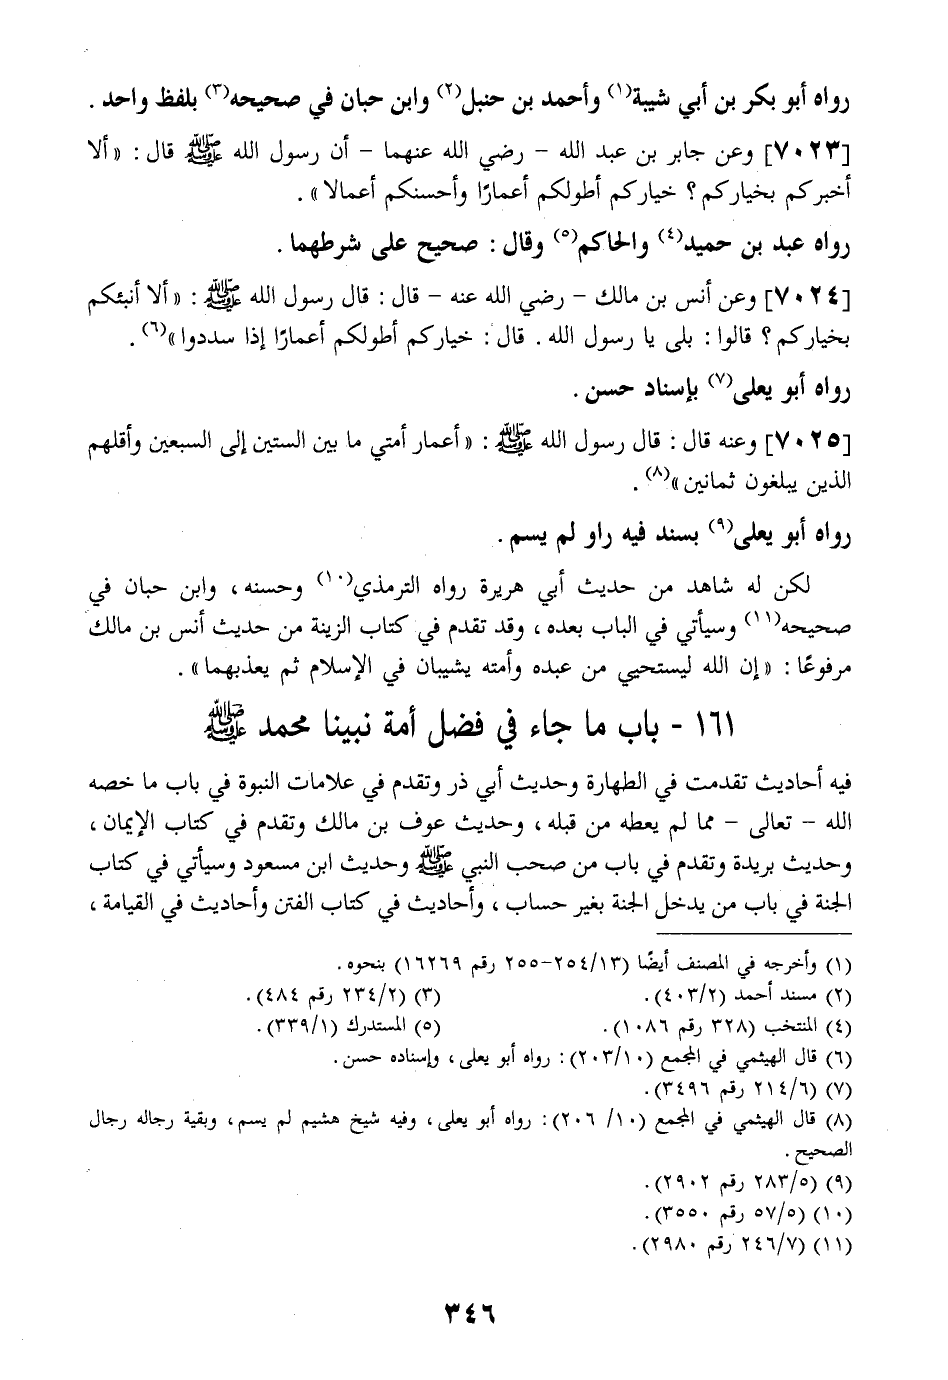 رواه أبو بكر بن أبي شيبة(١) وأحمد بن حنبل(٢) وابن حبان في صحيحه(٣) بلفظ واحد .
[٧٠٢٣] وعن جابر بن عبد الله - رضي الله عنهما - أن رسول الله ﷺ قال : «ألا
أخبركم بخياركم ؟ خياركم أطولكم أعمارًا وأحسنكم أعمالا» .
رواه عبد بن حميد(٤) والحاكم(٥) وقال : صحيح على شرطهما .
[٧٠٢٤] وعن أنس بن مالك - رضي الله عنه - قال : قال رسول الله ﷺ : «ألا أنبئكم
بخياركم ؟ قالوا : بلى يا رسول الله . قال : خياركم أطولكم أعمارًا إذا سددوا»(٦) .
رواه أبو يعلى(٧) بإسناد حسن .
[٧٠٢٥] وعنه قال : قال رسول الله ﷺ : «أعمار أمتي ما بين الستين إلى السبعين وأقلهم
الذين يبلغون ثمانين»(٨) .
رواه أبو يعلى(٩) بسند فيه راو لم يسم .
لكن له شاهد من حديث أبي هريرة رواه الترمذي(١٠) وحسنه ، وابن حبان في
صحيحه(١١) وسيأتي في الباب بعده ، وقد تقدم في كتاب الزينة من حديث أنس بن مالك
مرفوعًا : «إن الله ليستحيي من عبده وأمته يشيبان في الإسلام ثم يعذبهما» .
١٦١ - باب ما جاء في فضل أمة نبينا محمد ﷺ
فيه أحاديث تقدمت في الطهارة وحديث أبي ذر وتقدم في علامات النبوة في باب ما خصه
الله - تعالى - مما لم يعطه من قبله ، وحديث عوف بن مالك وتقدم في كتاب الإيمان ،
وحديث بريدة وتقدم في باب من صحب النبي ﷺ وحديث ابن مسعود وسيأتي في كتاب
الجنة في باب من يدخل الجنة بغير حساب ، وأحاديث في كتاب الفتن وأحاديث في القيامة ،
(١) وأخرجه في المصنف أيضًا (٢٥٤/١٣-٢٥٥ رقم ١٦٢٦٩) بنحوه.
(٢) مسند أحمد (٤٠٣/٢). (٣) (٢٣٤/٢ رقم ٤٨٤).
(٤) المنتخب (٣٢٨ رقم ١٠٨٦). (٥) المستدرك (٣٣٩/١).
(٦) قال الهيثمي في المجمع (٢٠٣/١٠): رواه أبو يعلى، وإسناده حسن.
(٧) (٢١٤/٦ رقم ٣٤٩٦).
(٨) قال الهيثمي في المجمع (١٠/ ٢٠٦): رواه أبو يعلى، وفيه شيخ هشيم لم يسم، وبقية رجاله رجال
الصحيح .
(٩) (٢٨٣/٥ رقم ٢٩٠٢).
(١٠) (٥٧/٥ رقم ٣٥٥٠).
(١١) (٢٤٦/٧ رقم ٢٩٨٠).
٣٤٦